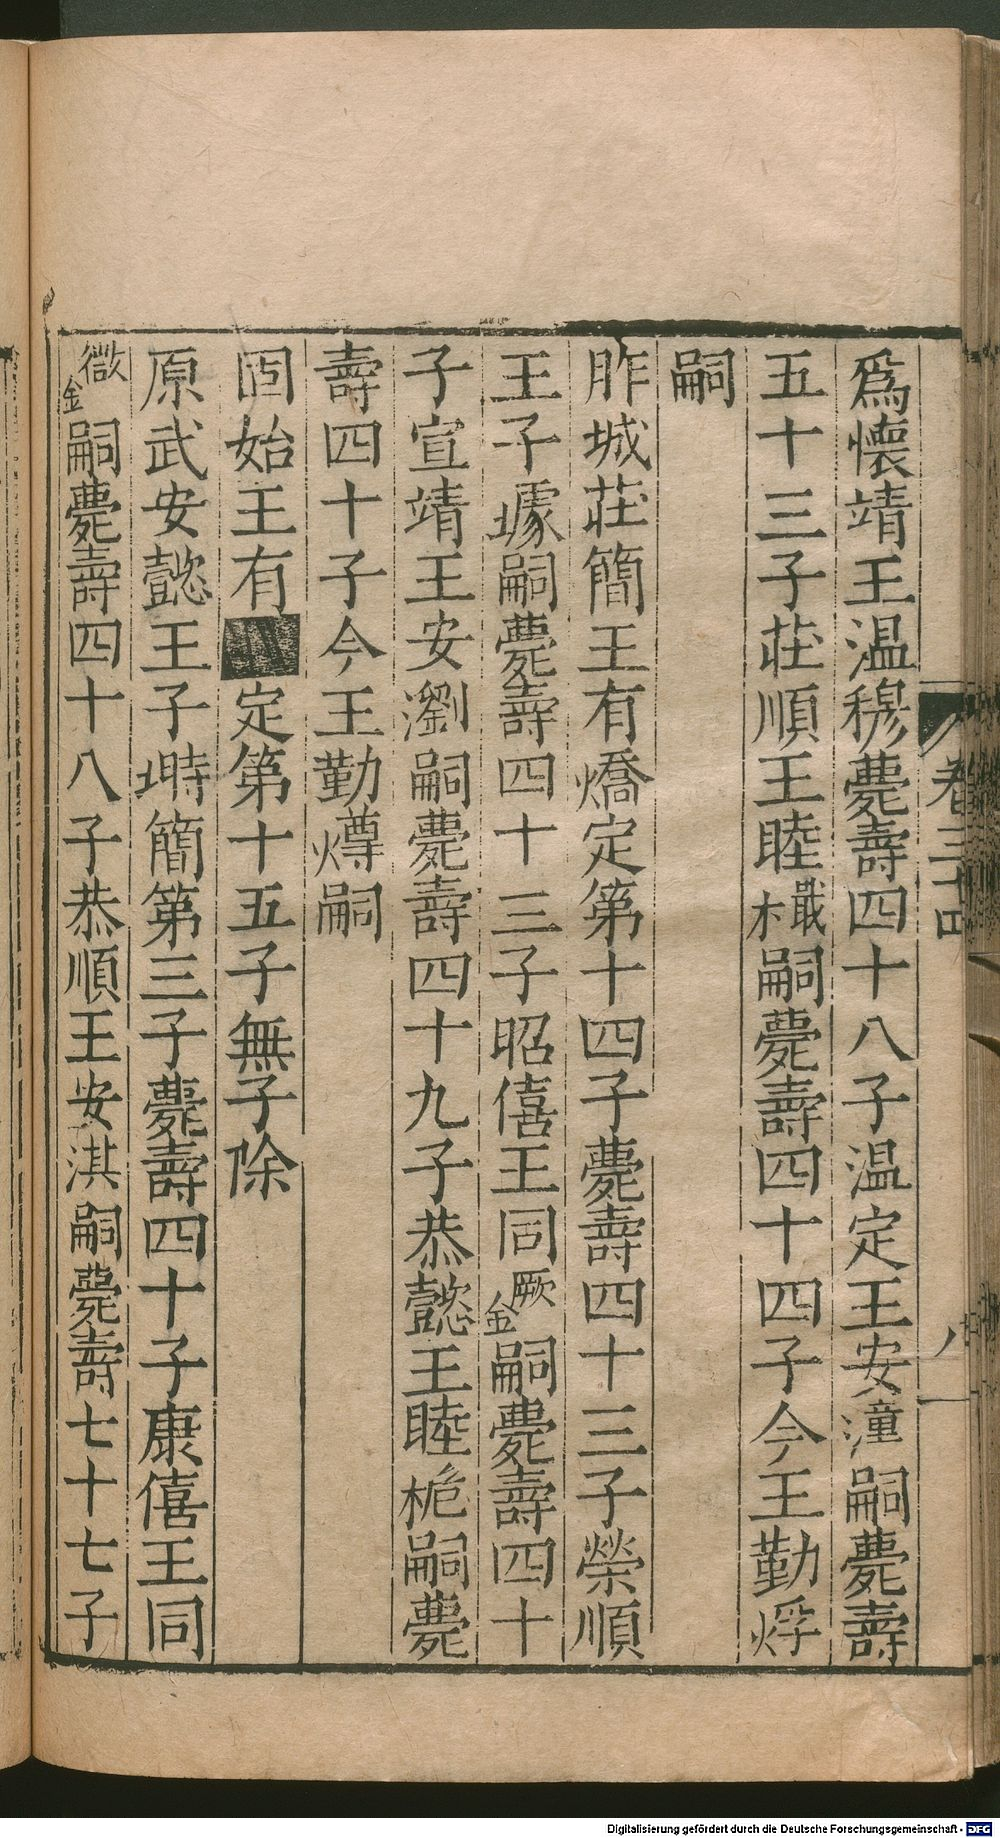 爲懐靖王温穆薨壽四十八子温定王安潼嗣薨壽
五十三子莊順王睦㰇嗣薨壽四十四子今王勤烰
嗣
胙城莊簡王有燆定第十四子薨壽四十三子榮順
王子㙔嗣薨壽四十三子昭僖王同鐝嗣薨壽四十
子宣靖王安瀏嗣薨壽四十九子恭懿王睦桅嗣薨
壽四十子今王勤㷮嗣
固始王有定第十五子無子除
原武安懿王子塒簡第三子薨壽四十子康僖王同
嗣薨壽四十八子恭順王安淇嗣薨壽七十七子
卷三十四
八
Digitalisierung gefördert durch die Deutsche Forschungsgemeinschaft - DFG